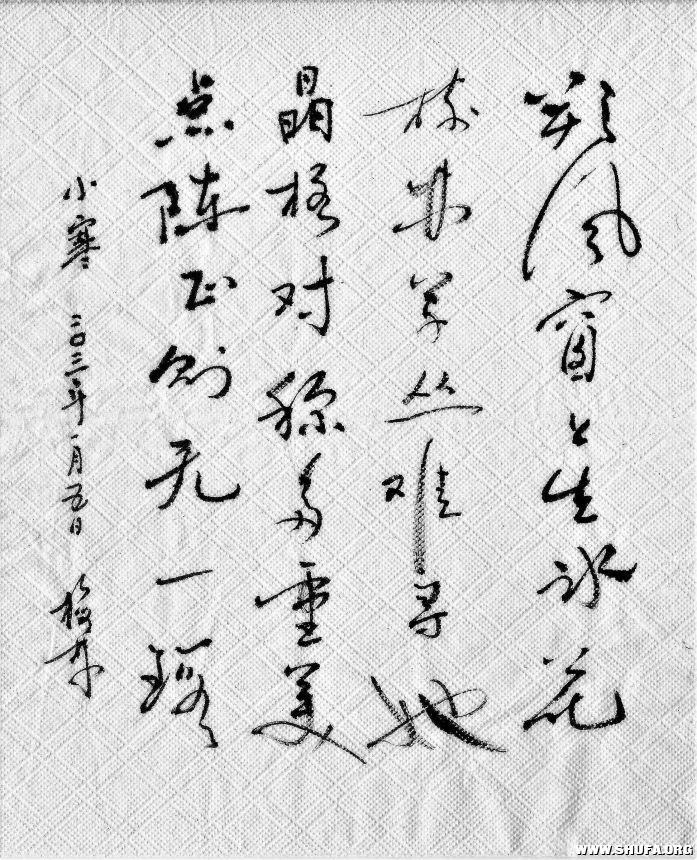 朔风窗上生冰花
草丛难寻她
晶格对称多重美
点阵正则无一瑕
小寒 二〇二三年一月五日
WWW.SHUFA.ORG